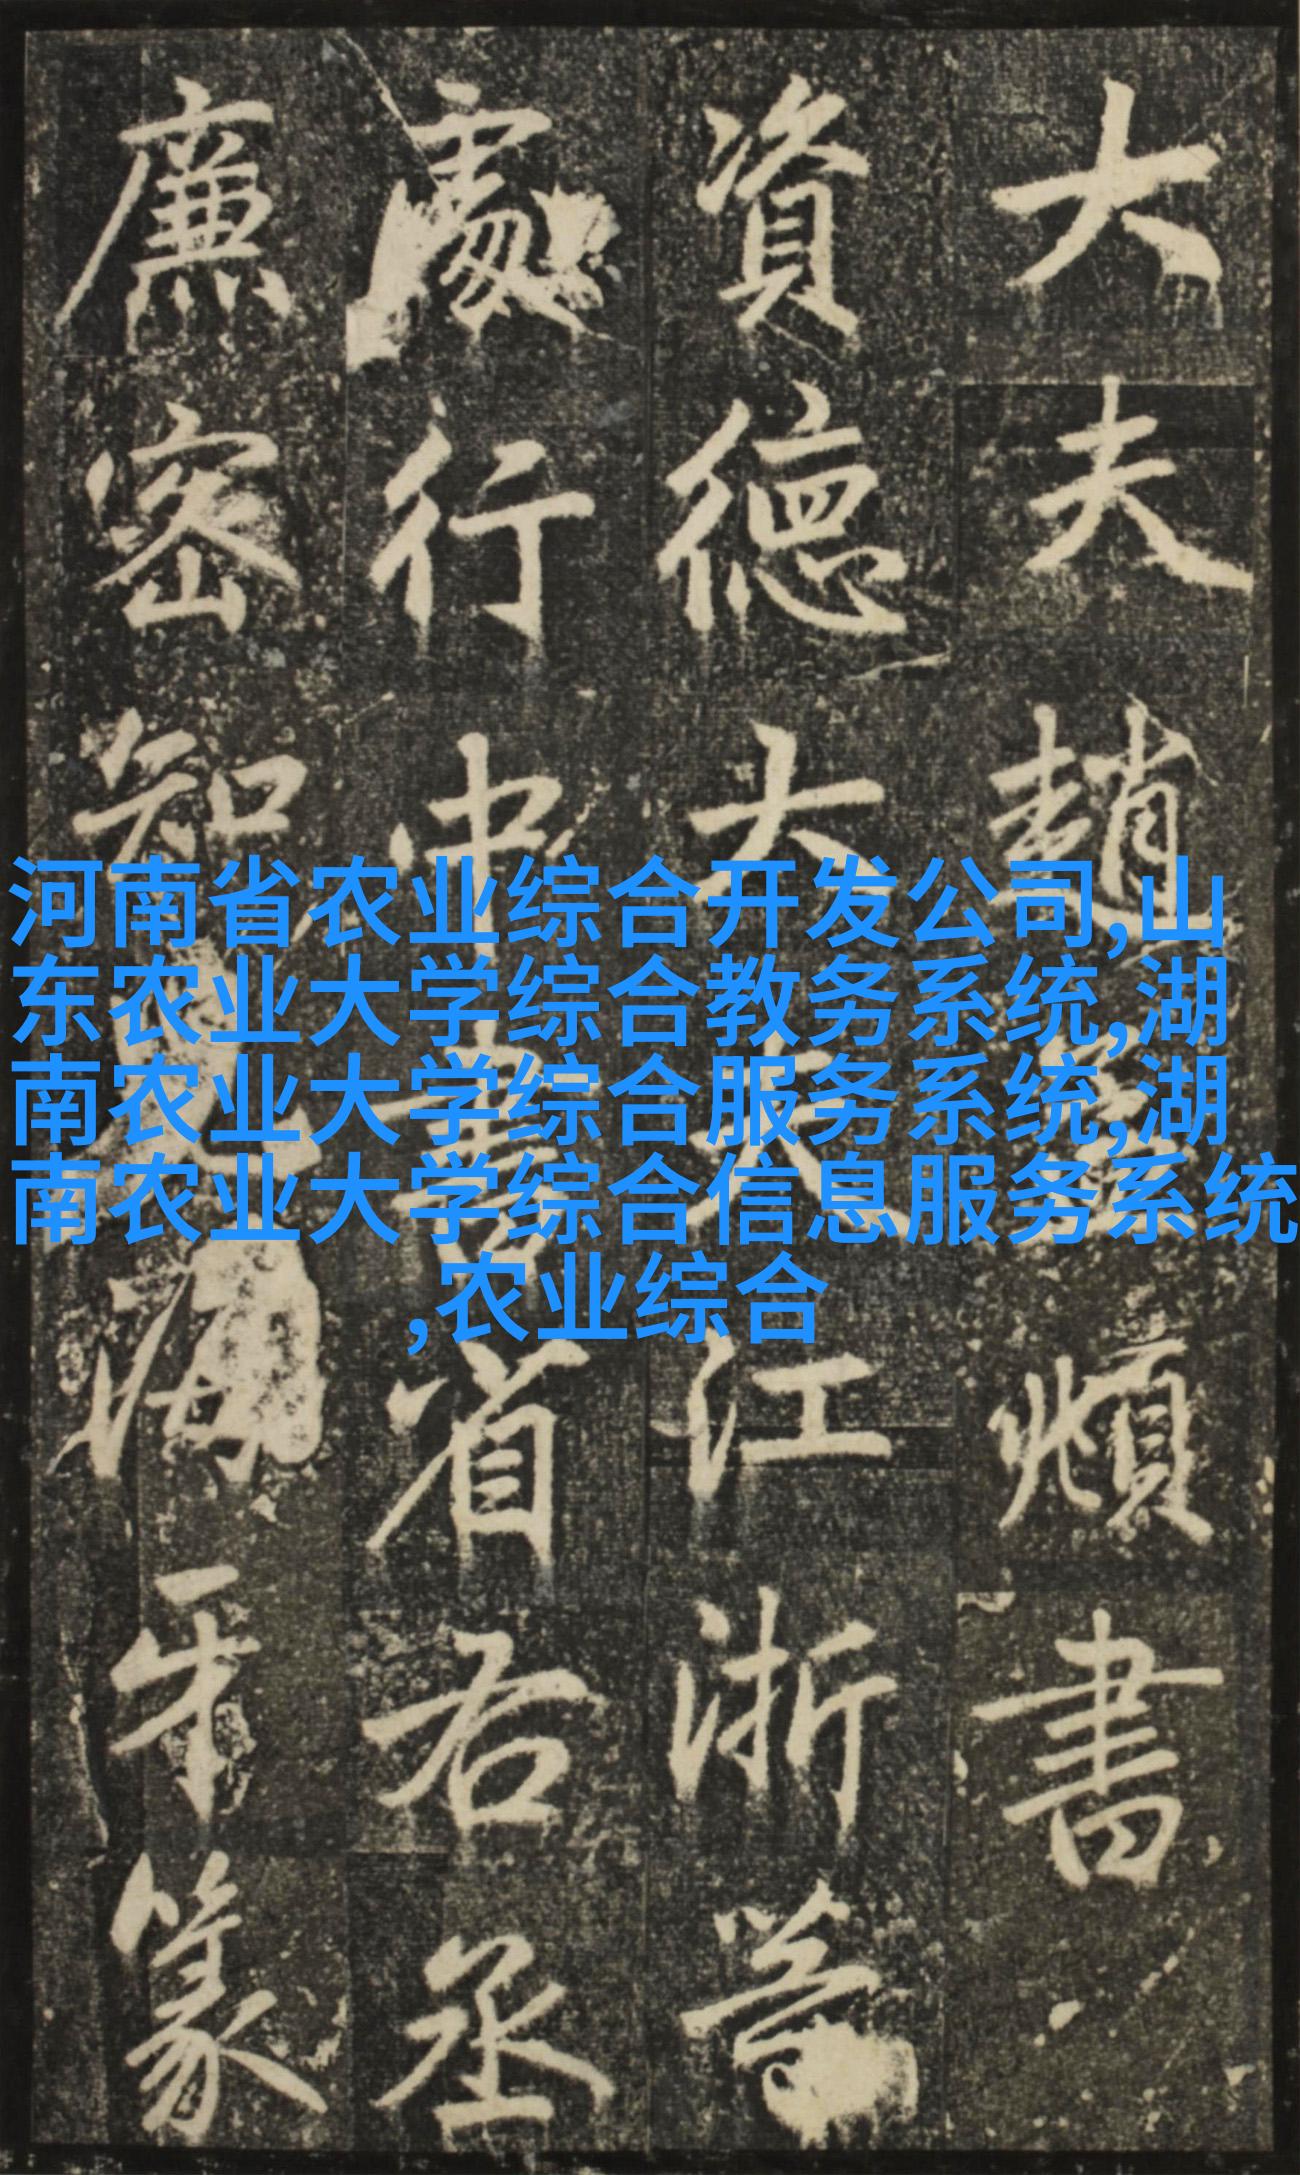 大夫趙孟頫書
資德大夫江浙等
處行中書省右丞
廉密知海牙篆
河南省农业综合开发公司,山
东农业大学综合教务系统,湖
南农业大学综合服务系统,湖
南农业大学综合信息服务系统
,农业综合